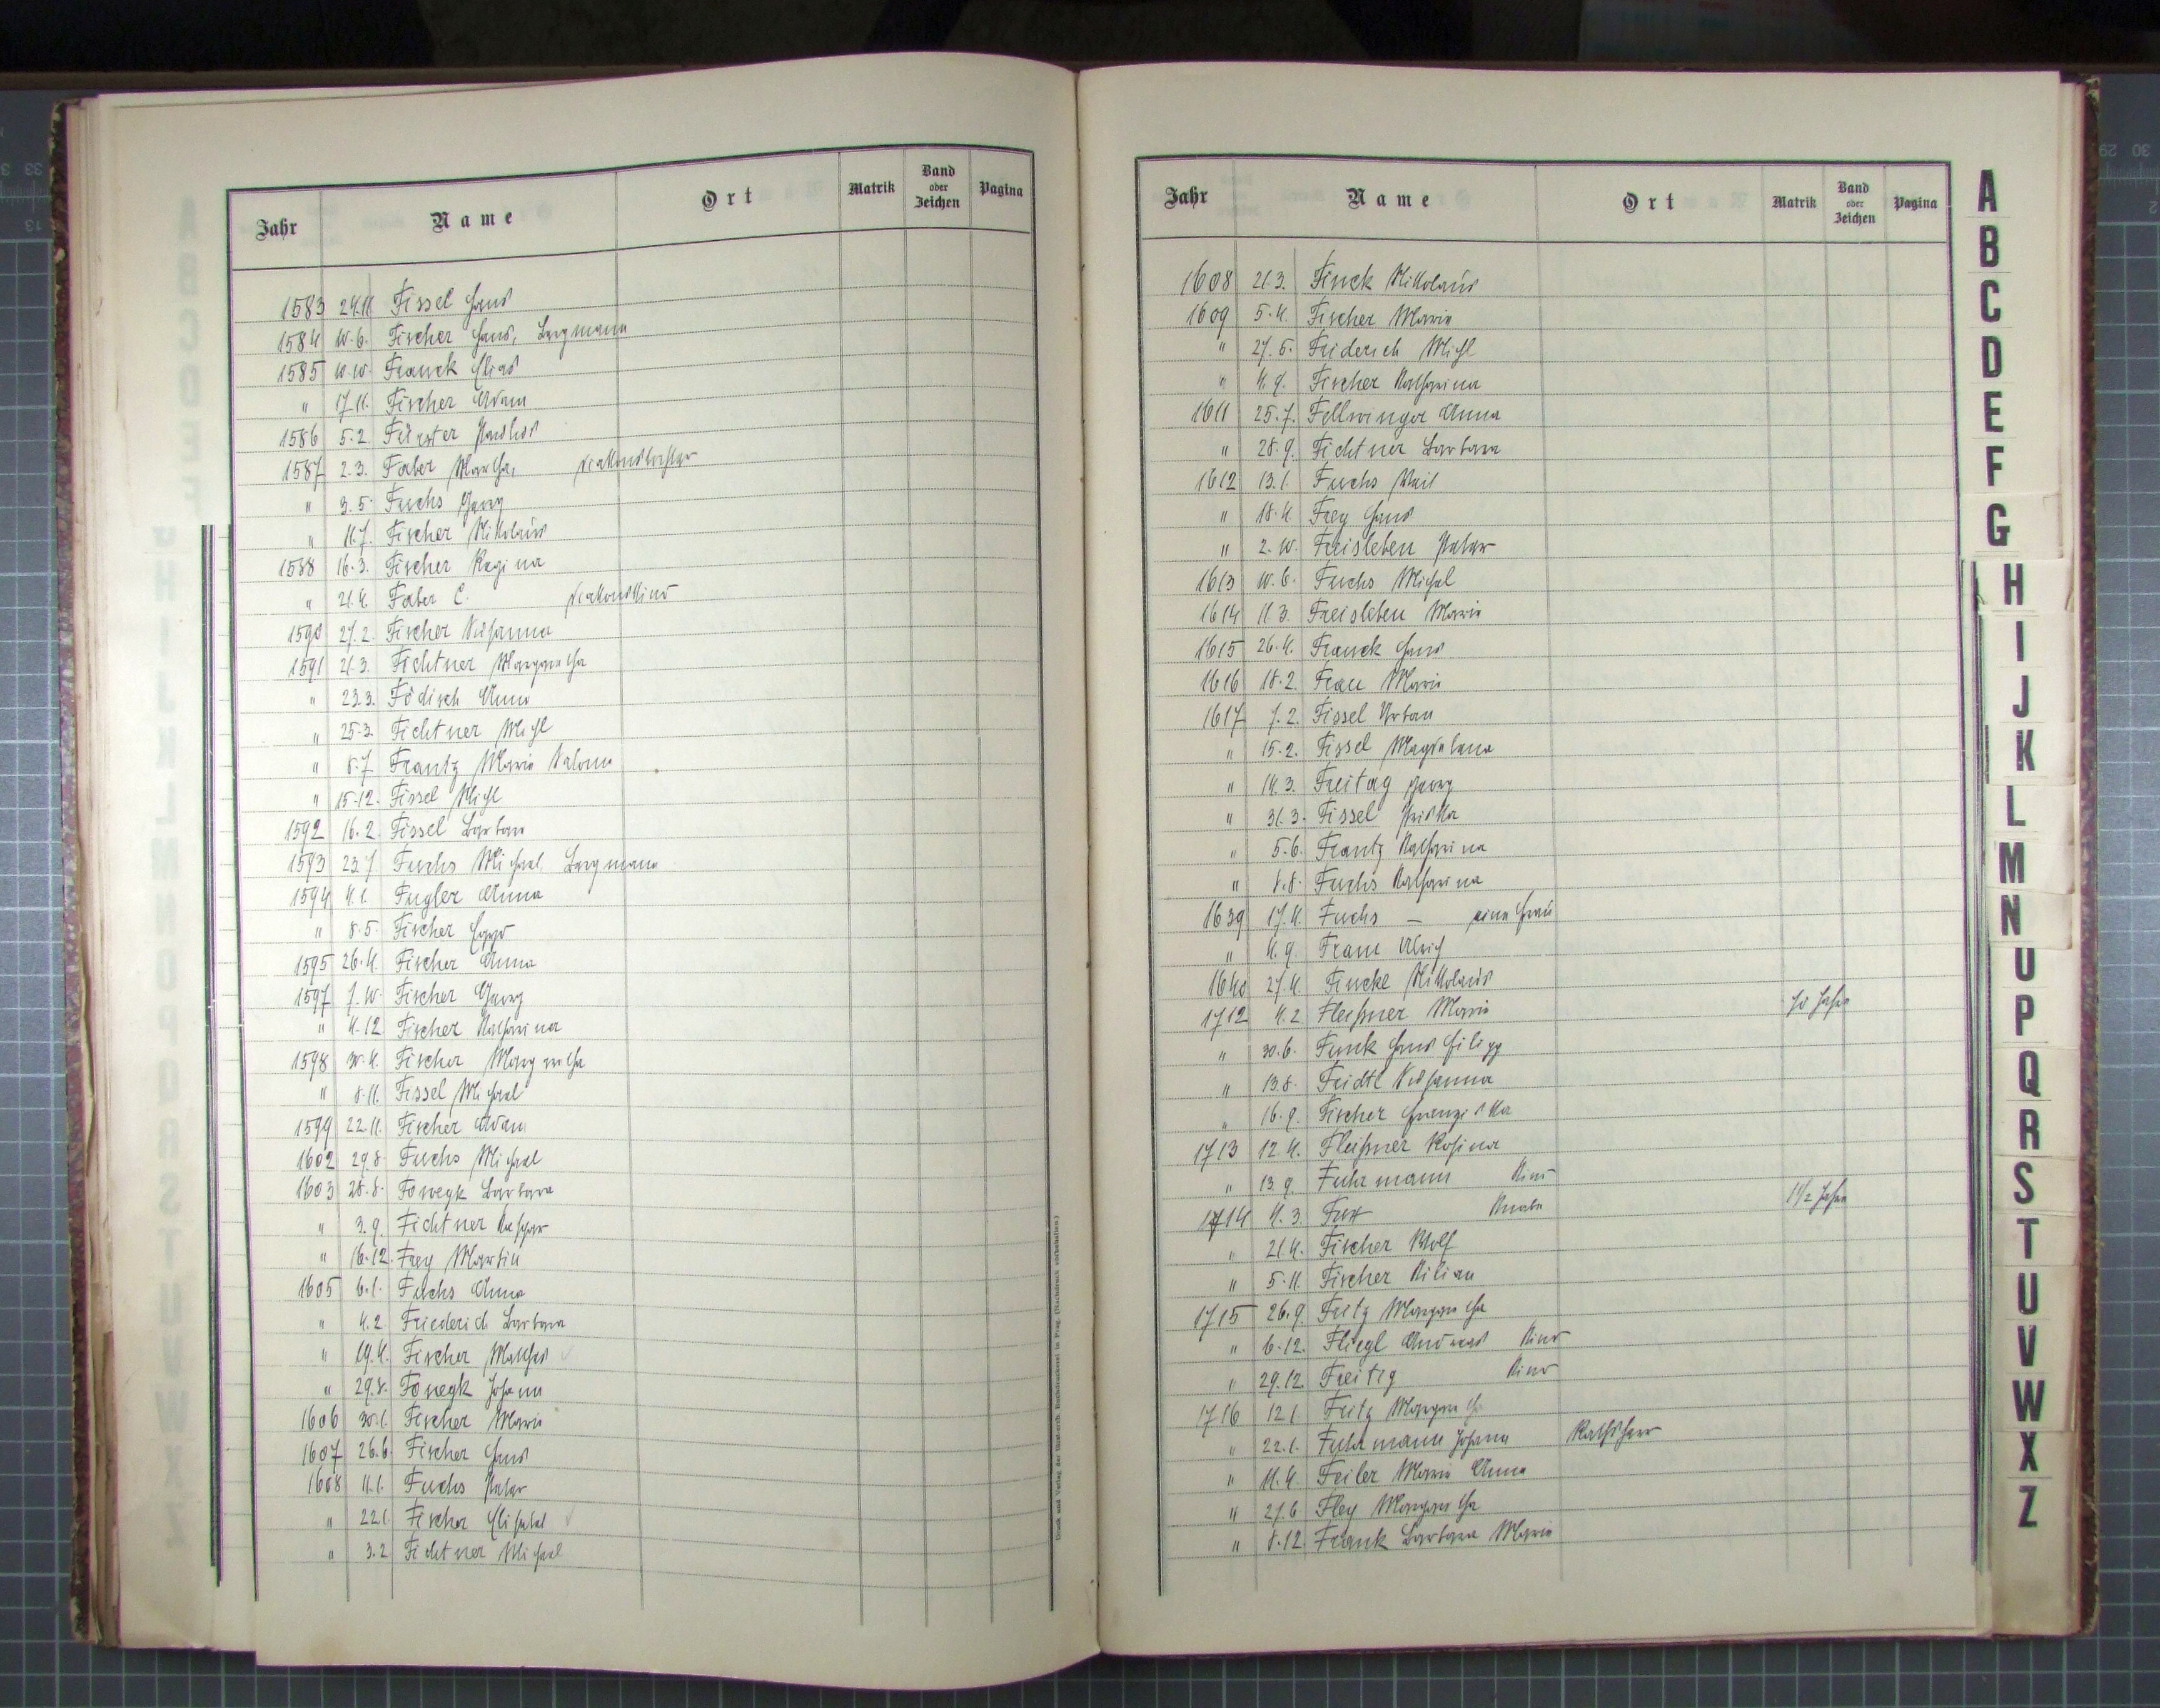 Jahr Name Ort Matrik Band oder Zeichen Pagina
1583 24.11. Fissel Hans
1584 10.6. Fischer Hans, Bergmann
1585 10.10. Franck Elias
" 17.11. Fischer Adam
1586 5.2. Fürster Paulus
1587 2.3. Faber Martha, Diakonstochter
" 3.5. Fuchs Georg
" 11.7. Fischer Nikolaus
1588 16.3. Fischer Regina
" 21.4. Faber C. Diakonskind
1590 27.2. Fischer Susanna
1591 21.3. Fichtner Margaretha
" 23.3. Födisch Anna
" 25.3. Fichtner Michl
" 8.7. Frantz Maria Salome
" 15.12. Fissel Michl
1592 16.2. Fissel Barbara
1593 23.7. Fuchs Michael Bergmann
1594 4.1. Fugler Anna
" 8.5. Fischer
1595 26.4. Fischer Anna
1597 7.10. Fischer Georg
" 4.12. Fischer Katharina
1598 30.4. Fischer Margaretha
" 8.11. Fissel Michael
1599 22.11. Fischer Adam
1602 29.8. Fuchs Michael
1603 28.8. Barbara
" 3.9. Fichtner Kaspar
" 16.12. Frey Martin
1605 6.1. Fuchs Anna
" 4.2. Friederich Barbara
" 19.4. Fischer Mathes
" 29.8. Johann
1606 30.1. Fischer Maria
1607 26.6. Fischer Hans
1608 11.1. Fuchs Peter
" 22.1. Fischer Elisabet
" 3.2. Fichtner Michael
Druck und Verlag der Buchdruckerei in Prag. (Nachdruck vorbehalten.)
Jahr Name Ort Matrik Band oder Zeichen Pagina
1608 21.3. Finck Nikolaus
1609 5.4. Fischer Maria
" 27.6. Friderich Michl
" 4.9. Fischer Katharina
1611 25.7. Fellwinger Anna
" 28.9. Fichtner Barbara
1612 13.1. Fuchs Veit
" 18.4. Frey Hans
" 2.10. Freisleben Peter
1613 10.6. Fuchs Michel
1614 11.3. Freisleben Maria
1615 26.4. Franck Hans
1616 18.2. Frau Maria
1617 7.2. Fissel Urban
" 15.2. Fissel Magdalena
" 14.3. Freitag Georg
" 31.3. Fissel Priska
" 5.6. Frantz Katharina
" 8.8. Fuchs Katharina
1639 17.4. Fuchs — eine Frau
" 4.9. Fram Ulrich
1640 27.4. Finckl Nikolaus
1712 4.2. Fleißner Maria 70 Jahre
" 30.6. Funk Hans Filipp
" 13.8. Fridtl Susanna
" 16.9. Fischer Franziska
1713 12.4. Fleißner Rosina
" 13.9. Fuhrmann Kind
1714 4.3. Fux Knabe 1 1/2 Jahre
" 21.4. Fischer Wolf
" 5.11. Fischer Kilian
1715 26.9. Fritz Margaretha
" 6.12. Fliegl Andreas Kind
" 29.12. Freitig Kind
1716 12.1. Fritz Margaretha
" 22.1. Fuhrmann Johann Rathsherr
" 11.4. Feiler Maria Anna
" 27.6. Fley Margaretha
" 8.12. Frank Barbara Maria
A
B
C
D
E
F
G
H
I
J
K
L
M
N
U
P
Q
R
S
T
U
V
W
X
Z